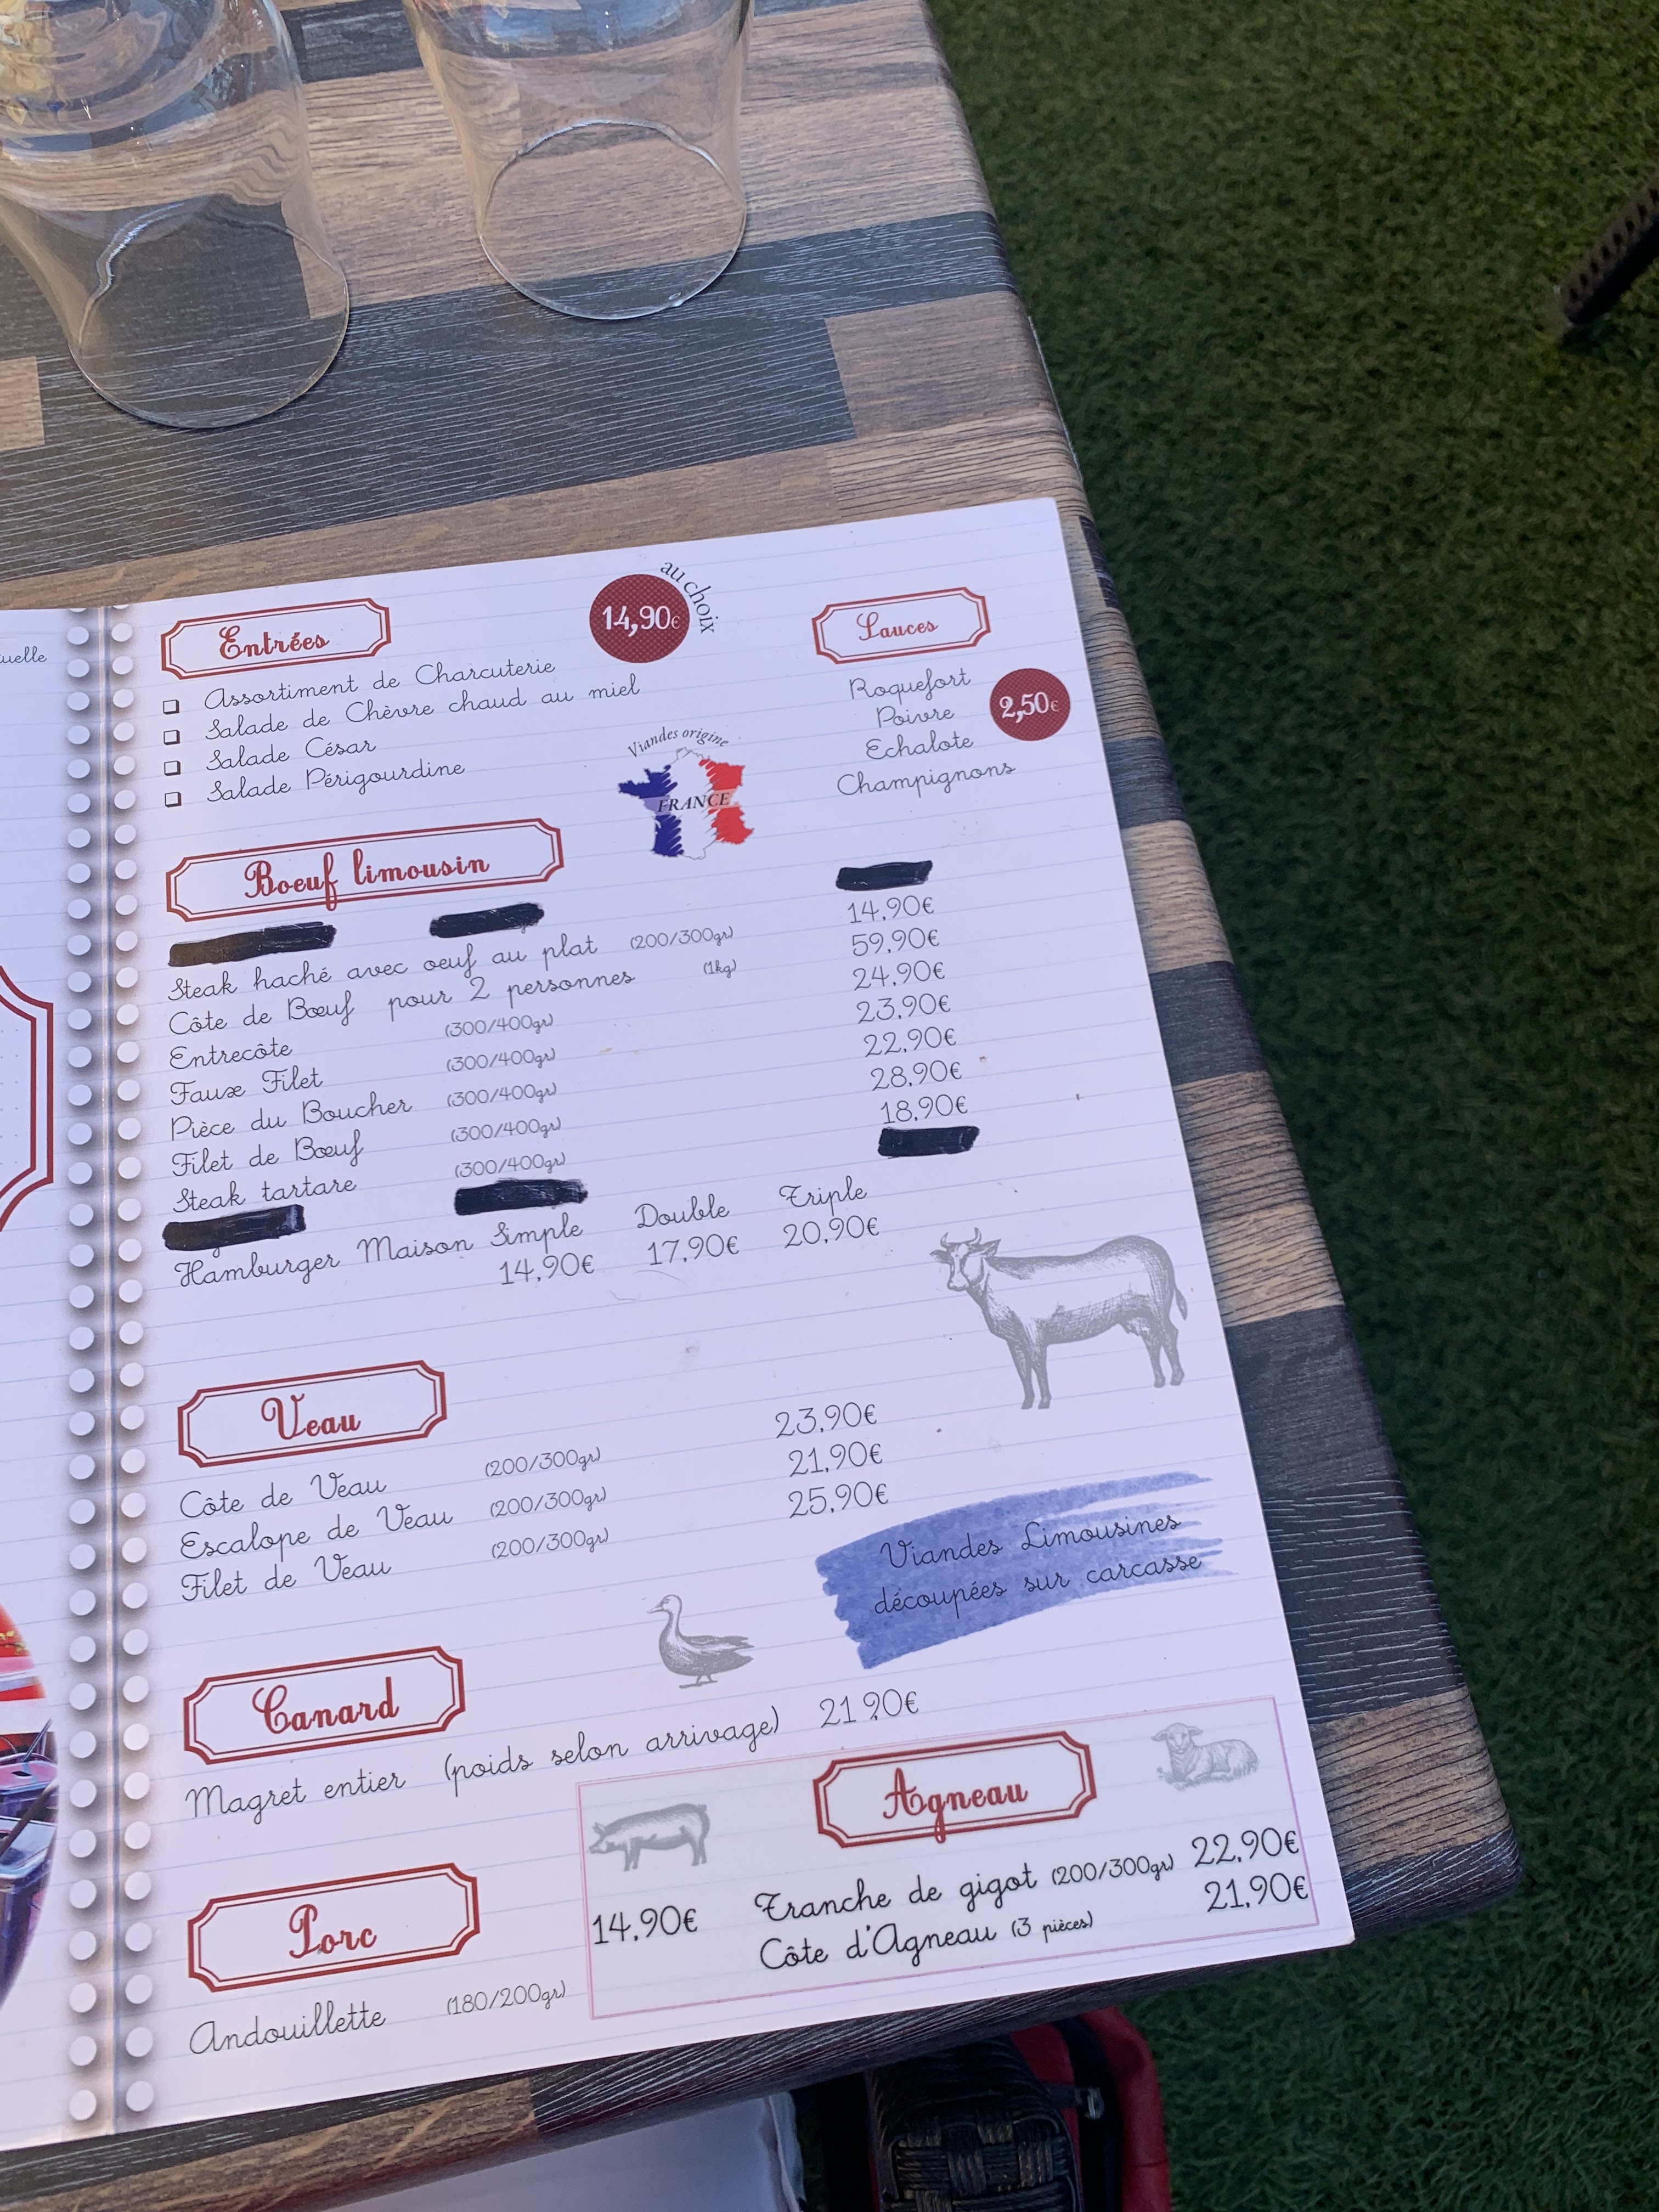 uelle
Entrées
14,90€
au choix
❏ Assortiment de Charcuterie
❏ Salade de Chèvre chaud au miel
❏ Salade César
❏ Salade Périgourdine
Sauces
Roquefort
Poivre
2,50€
Echalote
Champignons
Viandes origine
FRANCE
Boeuf limousin
Steak haché avec oeuf au plat (200/300gr) 14.90€
Côte de Bœuf pour 2 personnes (1kg) 59.90€
Entrecôte (300/400gr) 24.90€
Faux Filet (300/400gr) 23.90€
Pièce du Boucher (300/400gr) 22.90€
Filet de Bœuf (300/400gr) 28.90€
Steak tartare (300/400gr) 18.90€
Hamburger Maison Simple Double Triple
14.90€ 17.90€ 20.90€
Veau
Côte de Veau (200/300gr) 23.90€
Escalope de Veau (200/300gr) 21.90€
Filet de Veau (200/300gr) 25.90€
Viandes Limousines
découpées sur carcasse
Canard
Magret entier (poids selon arrivage) 21.90€
Porc
Andouillette (180/200gr) 14.90€
Agneau
Tranche de gigot (200/300gr) 22.90€
Côte d'Agneau (3 pièces) 21.90€